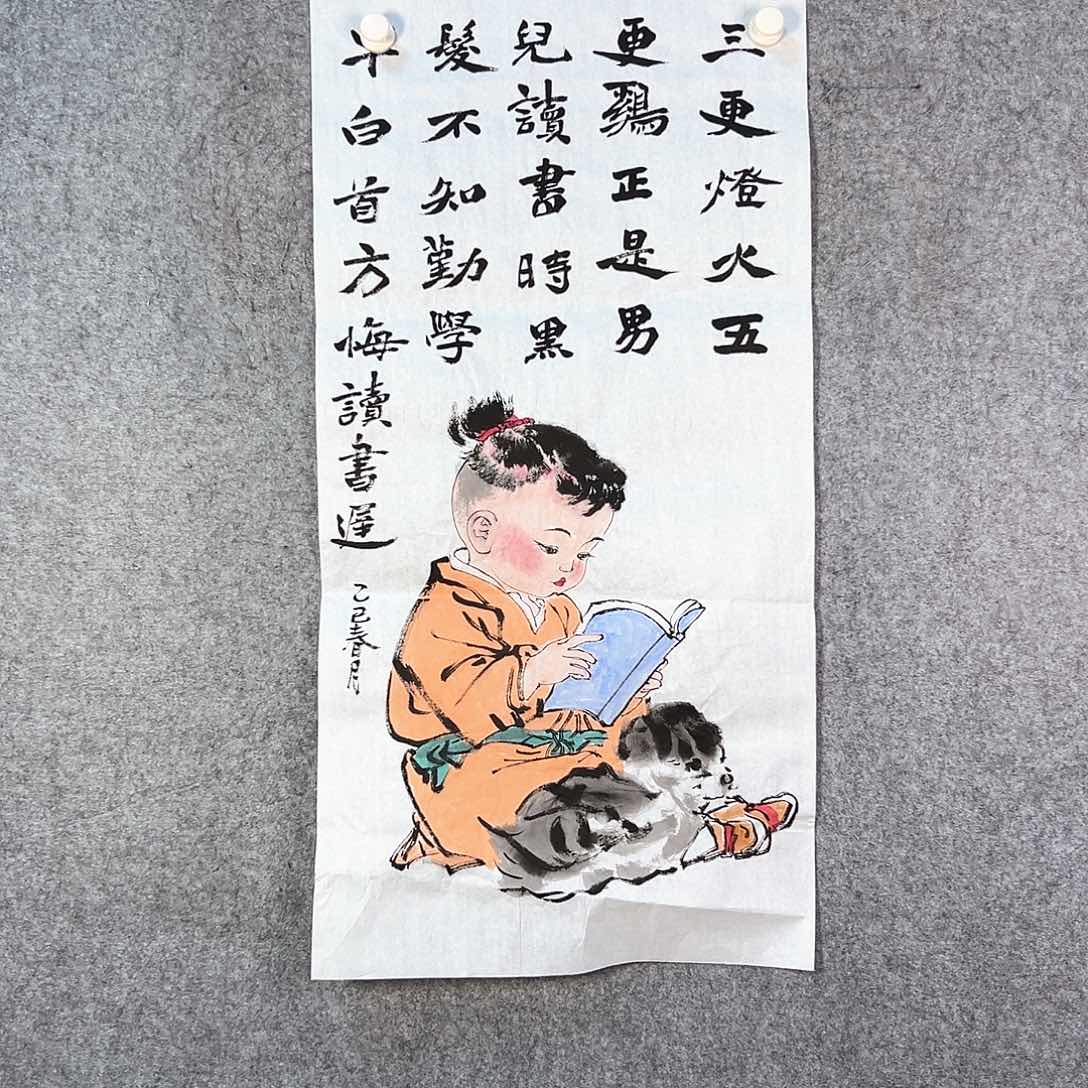 三更燈火五
更鷄正是男
兒讀書時黑
髮不知勤學
早白首方悔讀書遲
乙巳春月